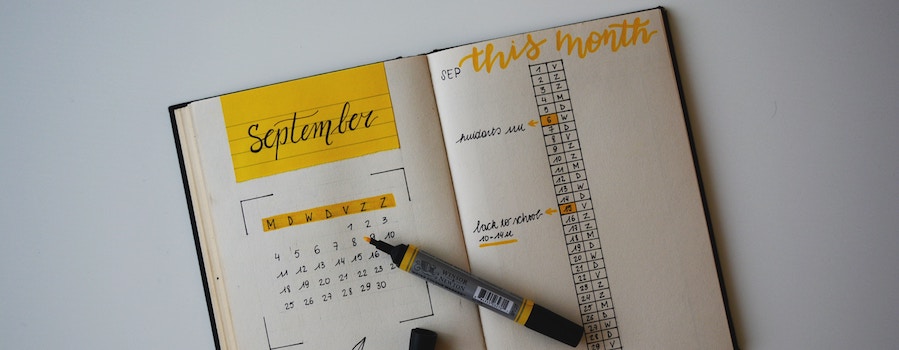 September
M D W D V Z Z
1 2 3
4 5 6 7 8 9 10
11 12 13 14 15 16
18 19 20 21 22 23 2
25 26 27 28 29 30
WINSOR
& NEWTON
this month
SEP
1 V
2 Z
3 Z
4 M
5 D
6 W
7 D
8 V
9 Z
10 Z
11 M
12 D
13 W
14 D
15 V
16 Z
17 Z
18 M
19 D
20 W
21 D
22 V
23 Z
24 Z
25 M
26 D
27 W
28 D
29 V
back to school
10-14u